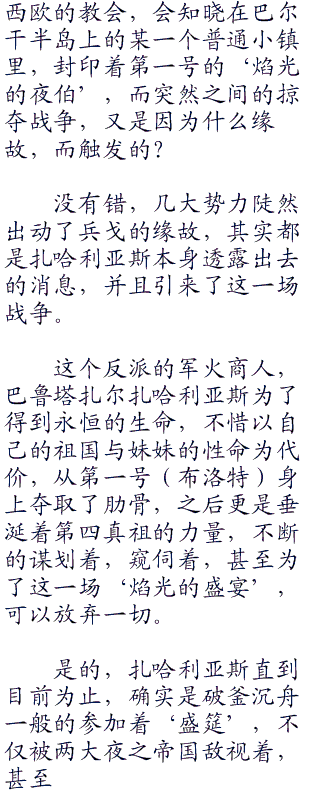 西欧的教会，会知晓在巴尔
干半岛上的某一个普通小镇
里，封印着第一号的‘焰光
的夜伯’，而突然之间的掠
夺战争，又是因为什么缘
故，而触发的？
没有错，几大势力陡然
出动了兵戈的缘故，其实都
是扎哈利亚斯本身透露出去
的消息，并且引来了这一场
战争。
这个反派的军火商人，
巴鲁塔扎尔扎哈利亚斯为了
得到永恒的生命，不惜以自
己的祖国与妹妹的性命为代
价，从第一号（布洛特）身
上夺取了肋骨，之后更是垂
涎着第四真祖的力量，不断
的谋划着，窥伺着，甚至为
了这一场‘焰光的盛宴’，
可以放弃一切。
是的，扎哈利亚斯直到
目前为止，确实是破釜沉舟
一般的参加着‘盛筵’，不
仅被两大夜之帝国敌视着，
甚至